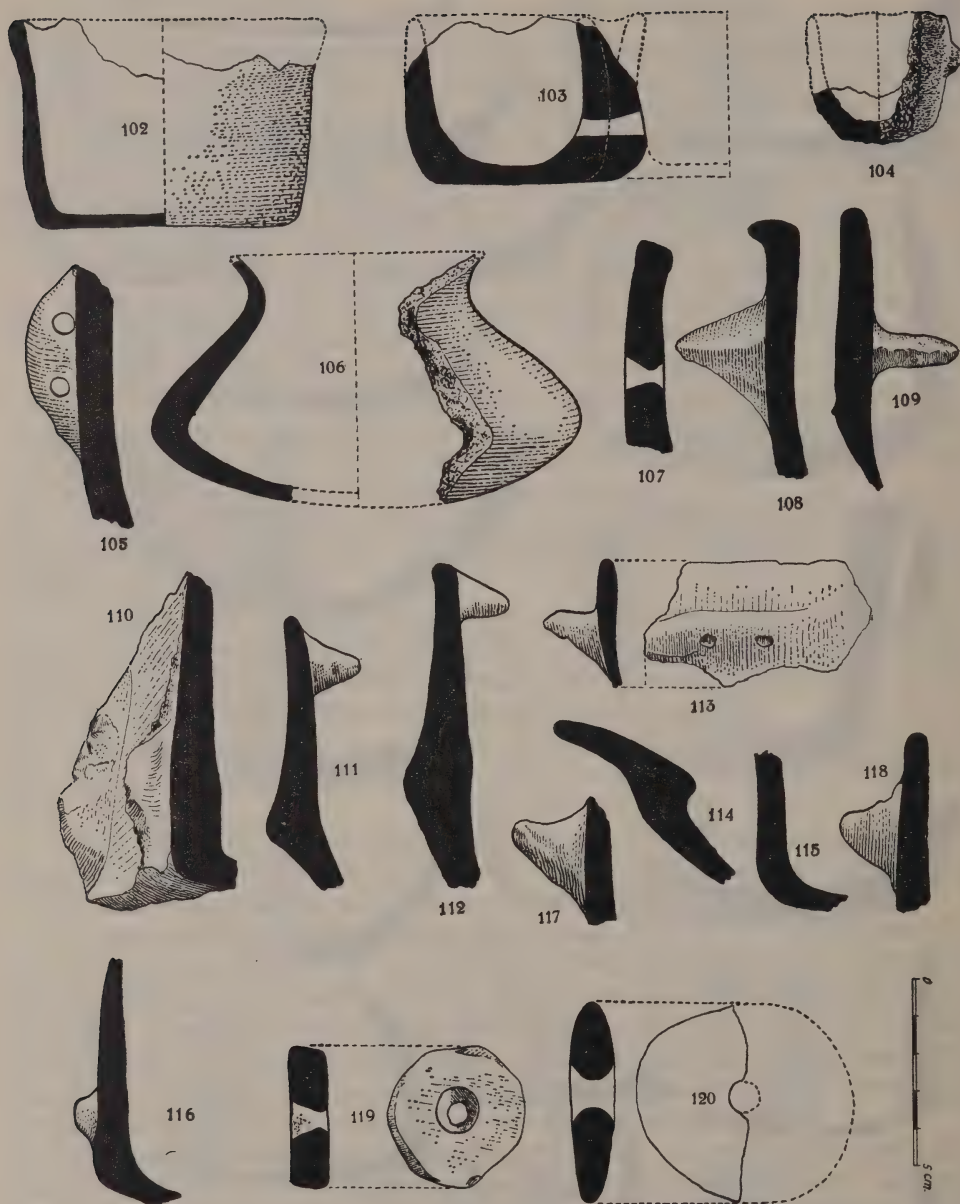 102
103
104
105
106
107
108
109
110
111
112
113
114
115
116
117
118
119
120
0
5 cm.